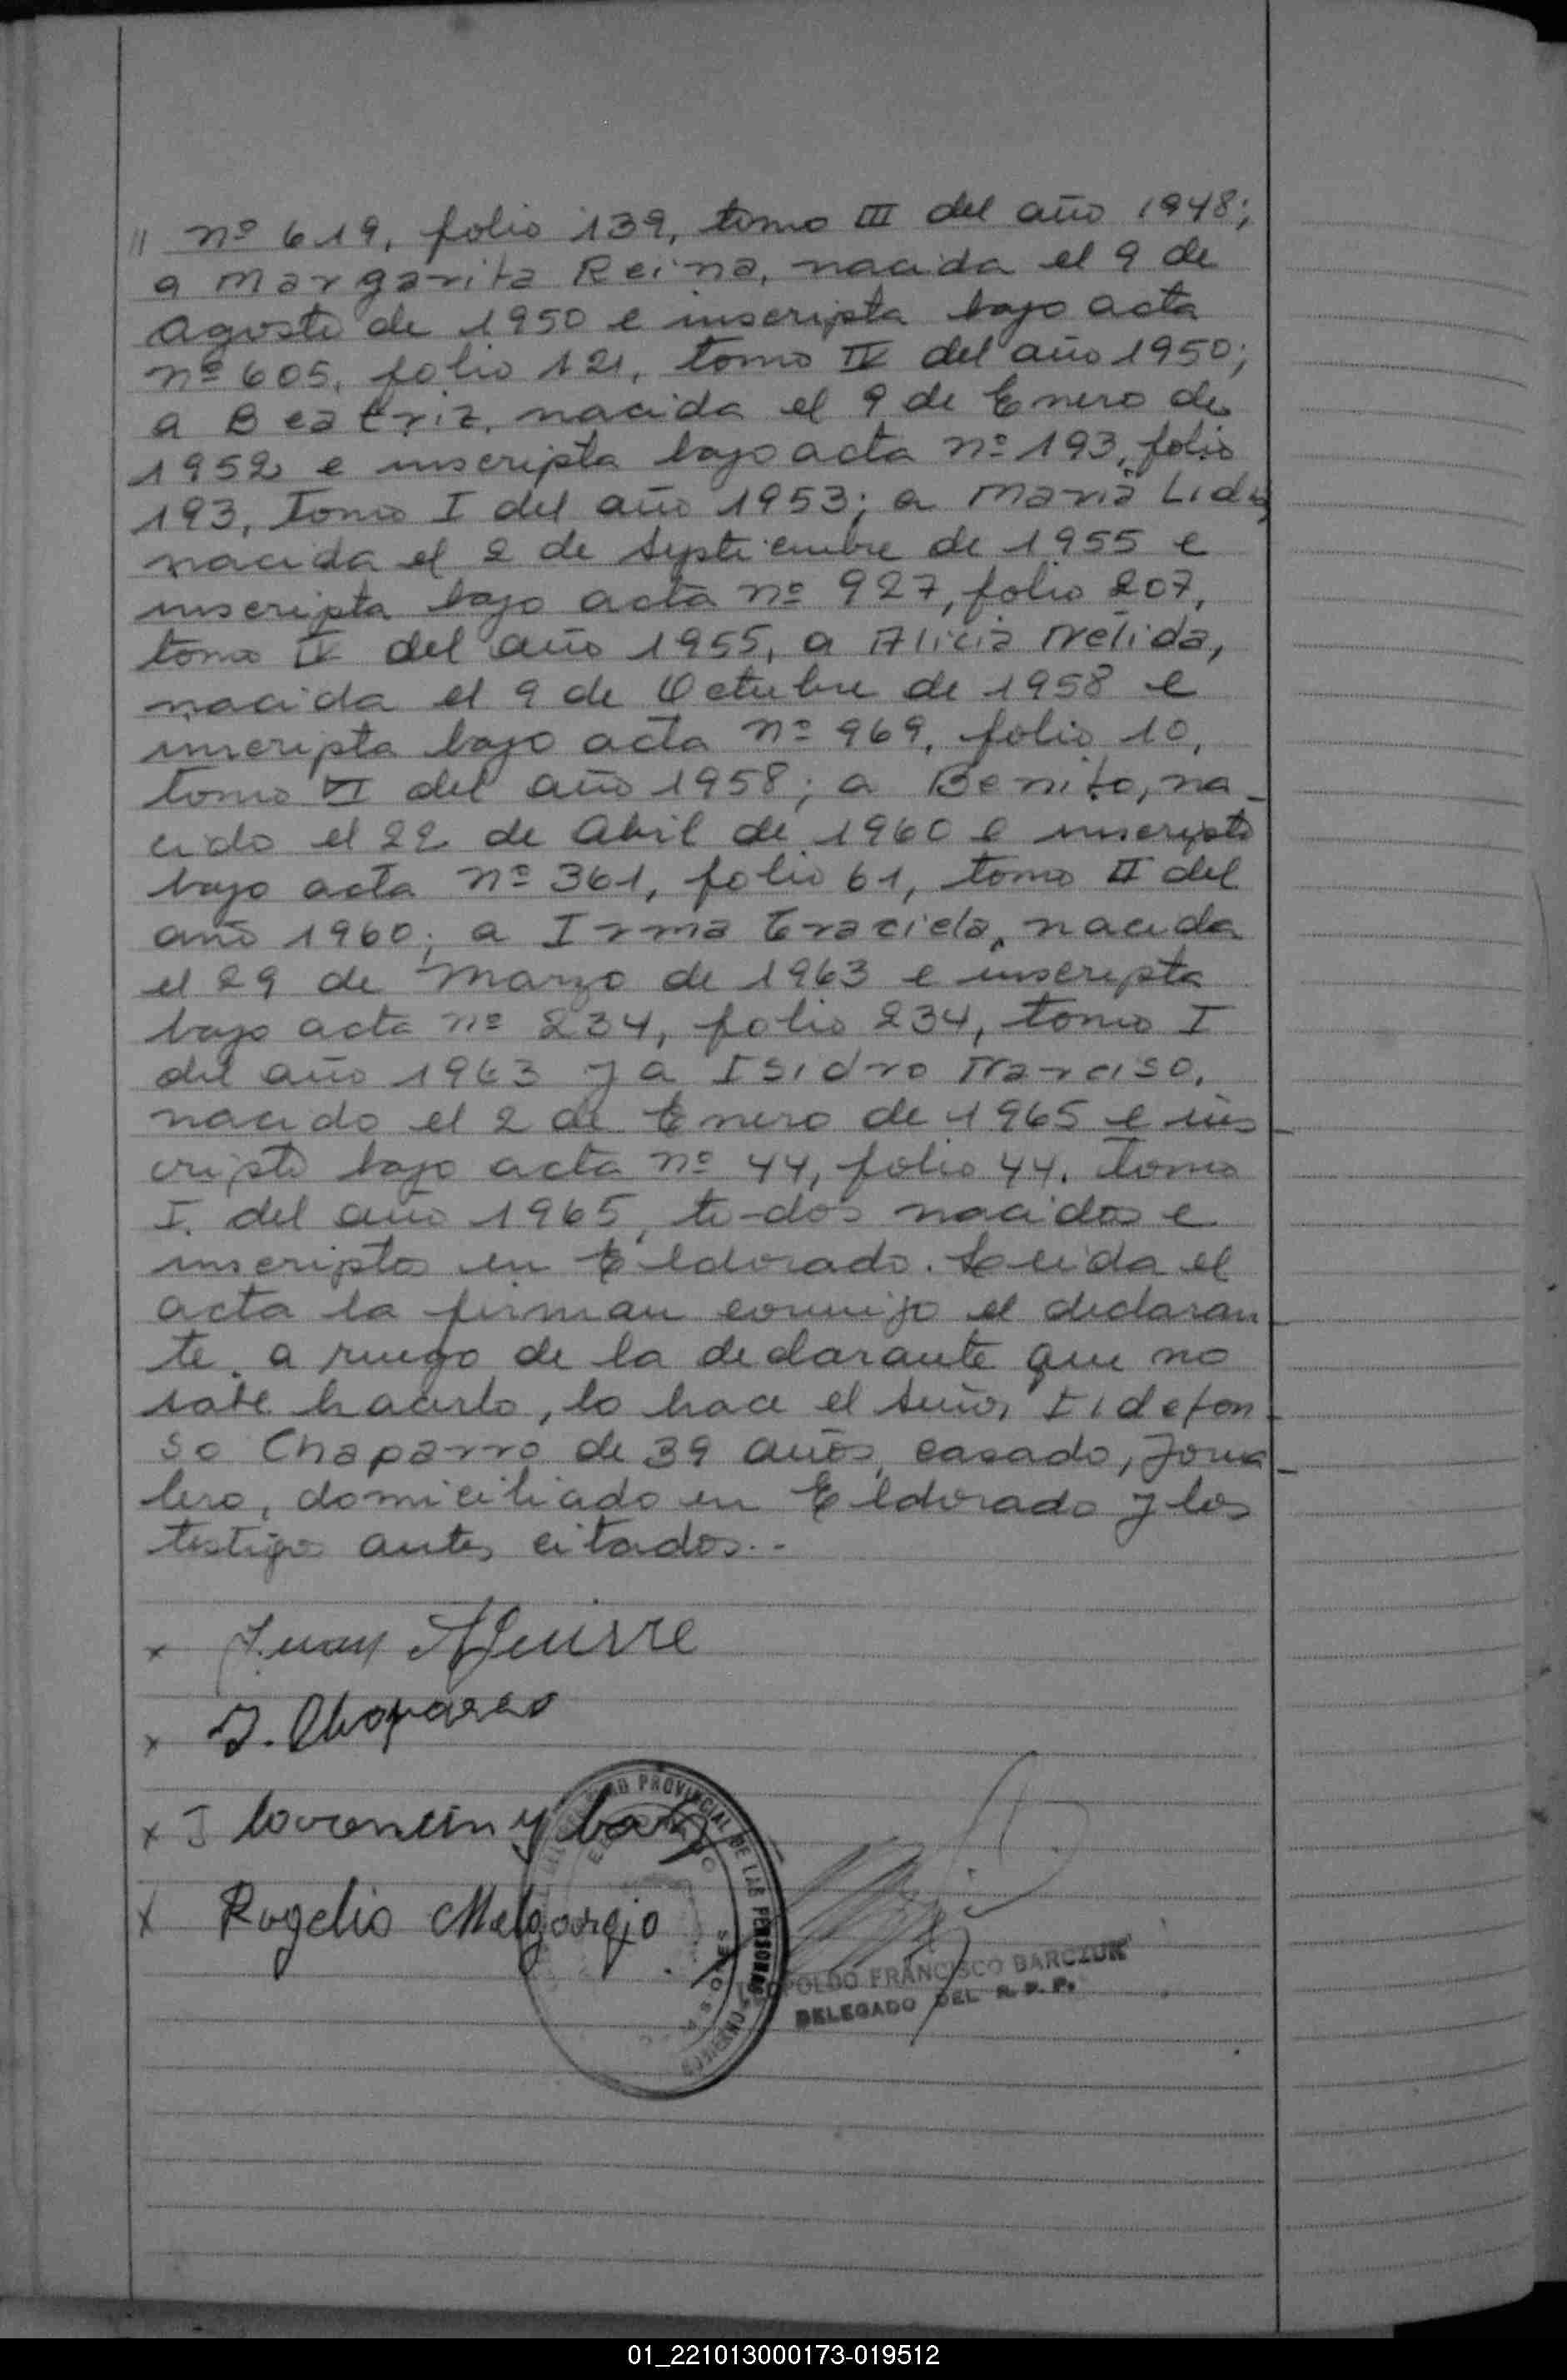 // nº 619, folio 139, tomo III del año 1948;
a Margarita Reina, nacida el 9 de
Agosto de 1950 e inscripta bajo acta
nº 605, folio 121, tomo IV del año 1950;
a Beatriz, nacida el 9 de Enero de
1952 e inscripta bajo acta nº 193, folio
193, Tomo I del año 1953; a María Lidia
nacida el 2 de Septiembre de 1955 e
inscripta bajo acta nº 927, folio 207,
tomo IV del año 1955, a Alicia Nélida,
nacida el 9 de Octubre de 1958 e
inscripta bajo acta nº 969, folio 10,
tomo VI del año 1958; a Benito, na-
cido el 22 de Abril de 1960 e inscripto
bajo acta nº 361, folio 61, tomo II del
año 1960; a Irma Graciela, nacida
el 29 de Marzo de 1963 e inscripta
bajo acta nº 234, folio 234, tomo I
del año 1963 y a Isidro Narciso,
nacido el 2 de Enero de 1965 e ins-
cripto bajo acta nº 44, folio 44, tomo
I. del año 1965, to-dos nacidos e
inscriptos en Eldorado. Leida el
acta la firman conmigo el declaran-
te, a ruego de la declarante que no
sabe hacerlo, lo hace el señor Ildefon-
so Chaparro de 39 años, casado, Jorna-
lero, domiciliado en Eldorado y los
testigos antes citados.-
x Juan Aguirre
x I. Chaparro
x
x Rogelio
PROVINCIAL DE LAS PERSONAS
MISIONES
LEOPOLDO FRANCISCO BARCZUK
DELEGADO DEL R. P. P.
01_221013000173-019512